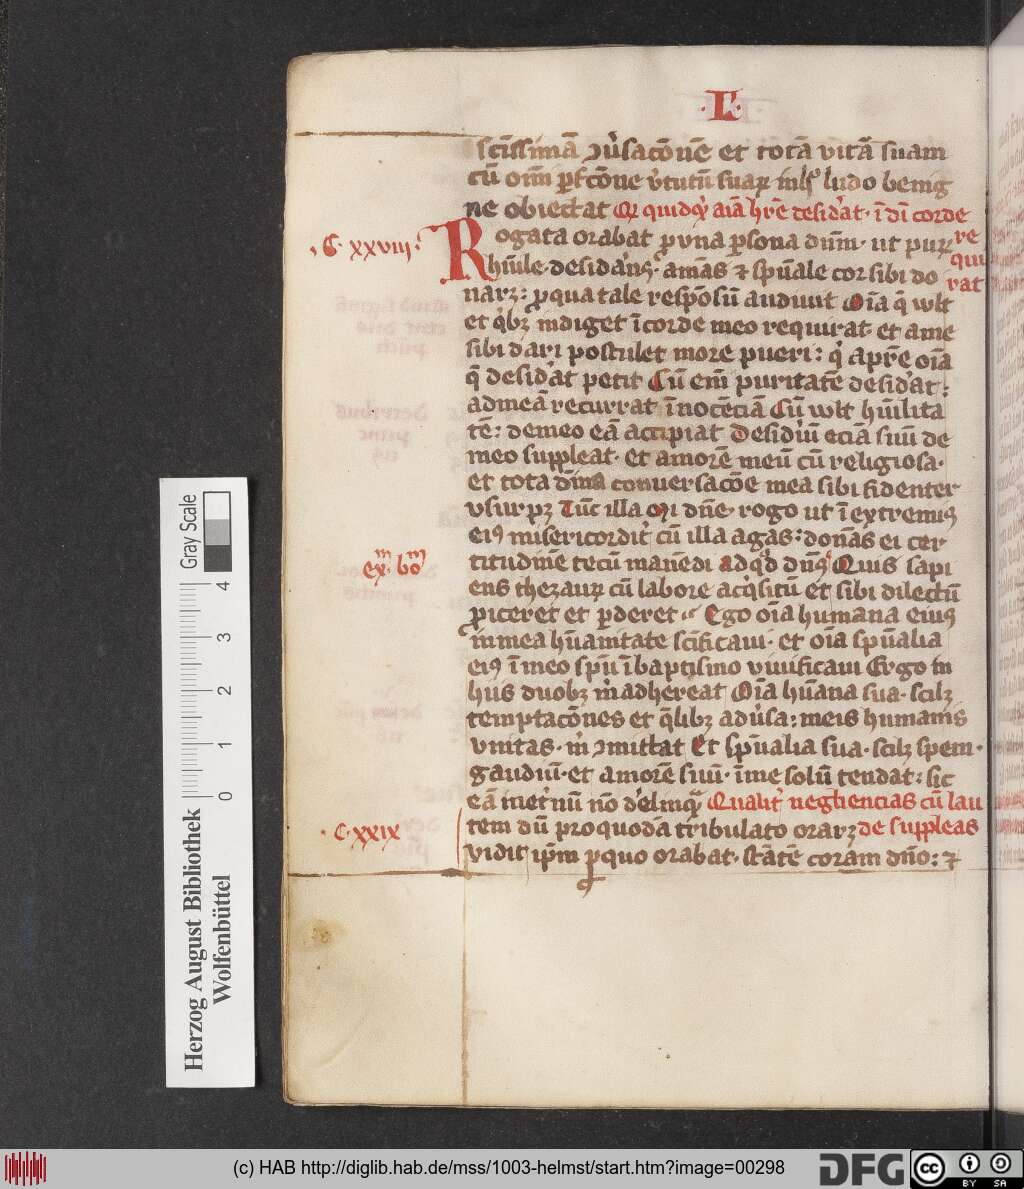 ·L·
sc̄issimā ɔv̓sac̄onē et totā vitā suam
cū om̄i ꝑfc̄one v̓tutū suaꝝ ludo benig
ne obiectat Q quidq̓ aīa hr̄e desid̓at· ī dī corde re
qui
rat
·C· xxviii·
Rogata orabat ꝓ vna ꝑsona dūm· ut puꝝ
hūile· desid̓ās· amās ⁊ spūale cor sibi do
narꝫ: ꝓ qua tale respōsū audiuit Oīa q̄ wlt
et q̓bꝫ indiget ī corde meo requirat· et a me
sibi dari postulet more pueri: q̓ a pr̄e oīa
q̄ desid̓at petit Cū em̄ puritatē desid̓at:
ad meā recurrat īnocēciā Cū wlt hūilita
tē: de meo eā accipiat Desid̓iū eciā suū de
meo suppleat· et amorē meū cū religiosa·
et tota diīna conuersac̄oe mea sibi fidenter
vsurpꝫ Tūc illa O dn̄e rogo ut ī extremis
eiꝰ misericordit̓ cū illa agas: donās ei cer
ex̄m· bo᷒m
titudinē tecū manēdi ad q̓d dn̄s Quis sapi
ens thezauꝝ cū labore acq̓situ et sibi dilectū
ꝓiceret et ꝑderet Ego oīa humana eius
in mea hūanitate sc̄ificaui· et oīa spūalia
eiꝰ ī meo spū ī baptismo viuificaui Ergo in
hiis duobꝫ m̓ adhereat Oīa hūana sua· scilꝫ
temptac̄ones et q̄libꝫ adu̓sa: meis humanis
vnitas· m̓ ɔmittat Et spūalia sua· scilꝫ spem·
gaudiū· et amorē suū· ī me solū tendat: sic
eā inet̓nū nō d̓elinq̄ Qualit̓ negliencias cū lau
·C·xxix
tem dū pro quodā tribulato orarꝫ de suppleas
vidit ip̄m ꝓ quo orabat· stātē coram dn̄o: ⁊
Gray Scale
0 1 2 3 4
Herzog August Bibliothek
Wolfenbüttel
(c) HAB http://diglib.hab.de/mss/1003-helmst/start.htm?image=00298
DFG
cc BY SA